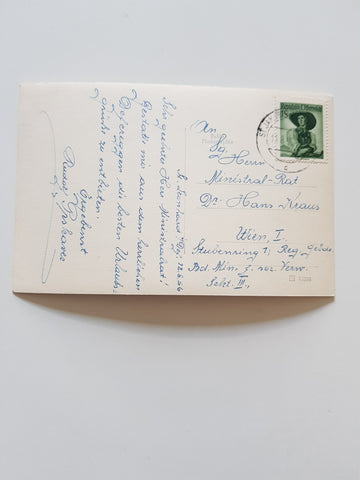 St. Leonhard
12.6.56
Sehr geehrter Herr Ministerialrat!
Gestatte mir aus dem herrlichen
die besten Urlaubs-
grüsse zu entbieten.
Ergebenst
Rudolf
An
Sg. Herrn
Ministral-Rat
Dr. Hans Kraus
Wien, I.
Stubenring 1, Reg. Gebde
Bd. Min. f. soz. Verw.
Sekt. III,